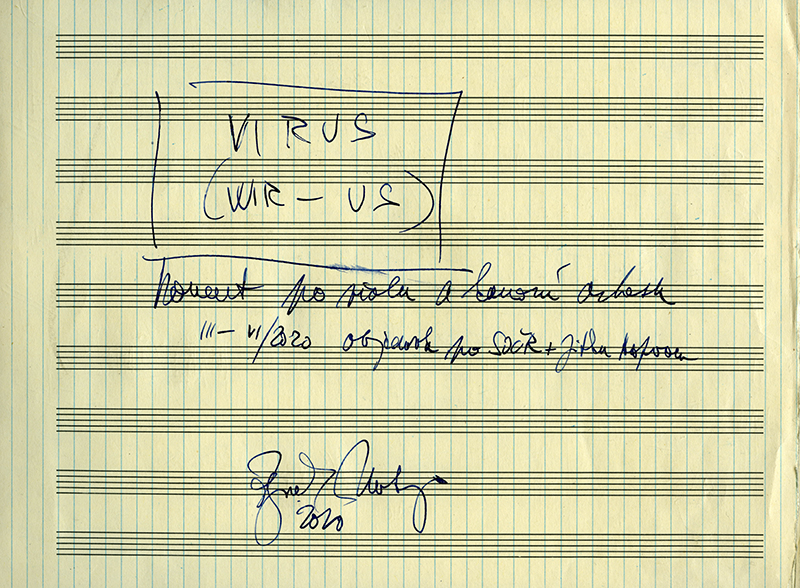 VIRUS
(WIR – US)
koncert pro violu a komorní orchestr
III – VI/2020 objednávka pro SOČR + Jitka
2020